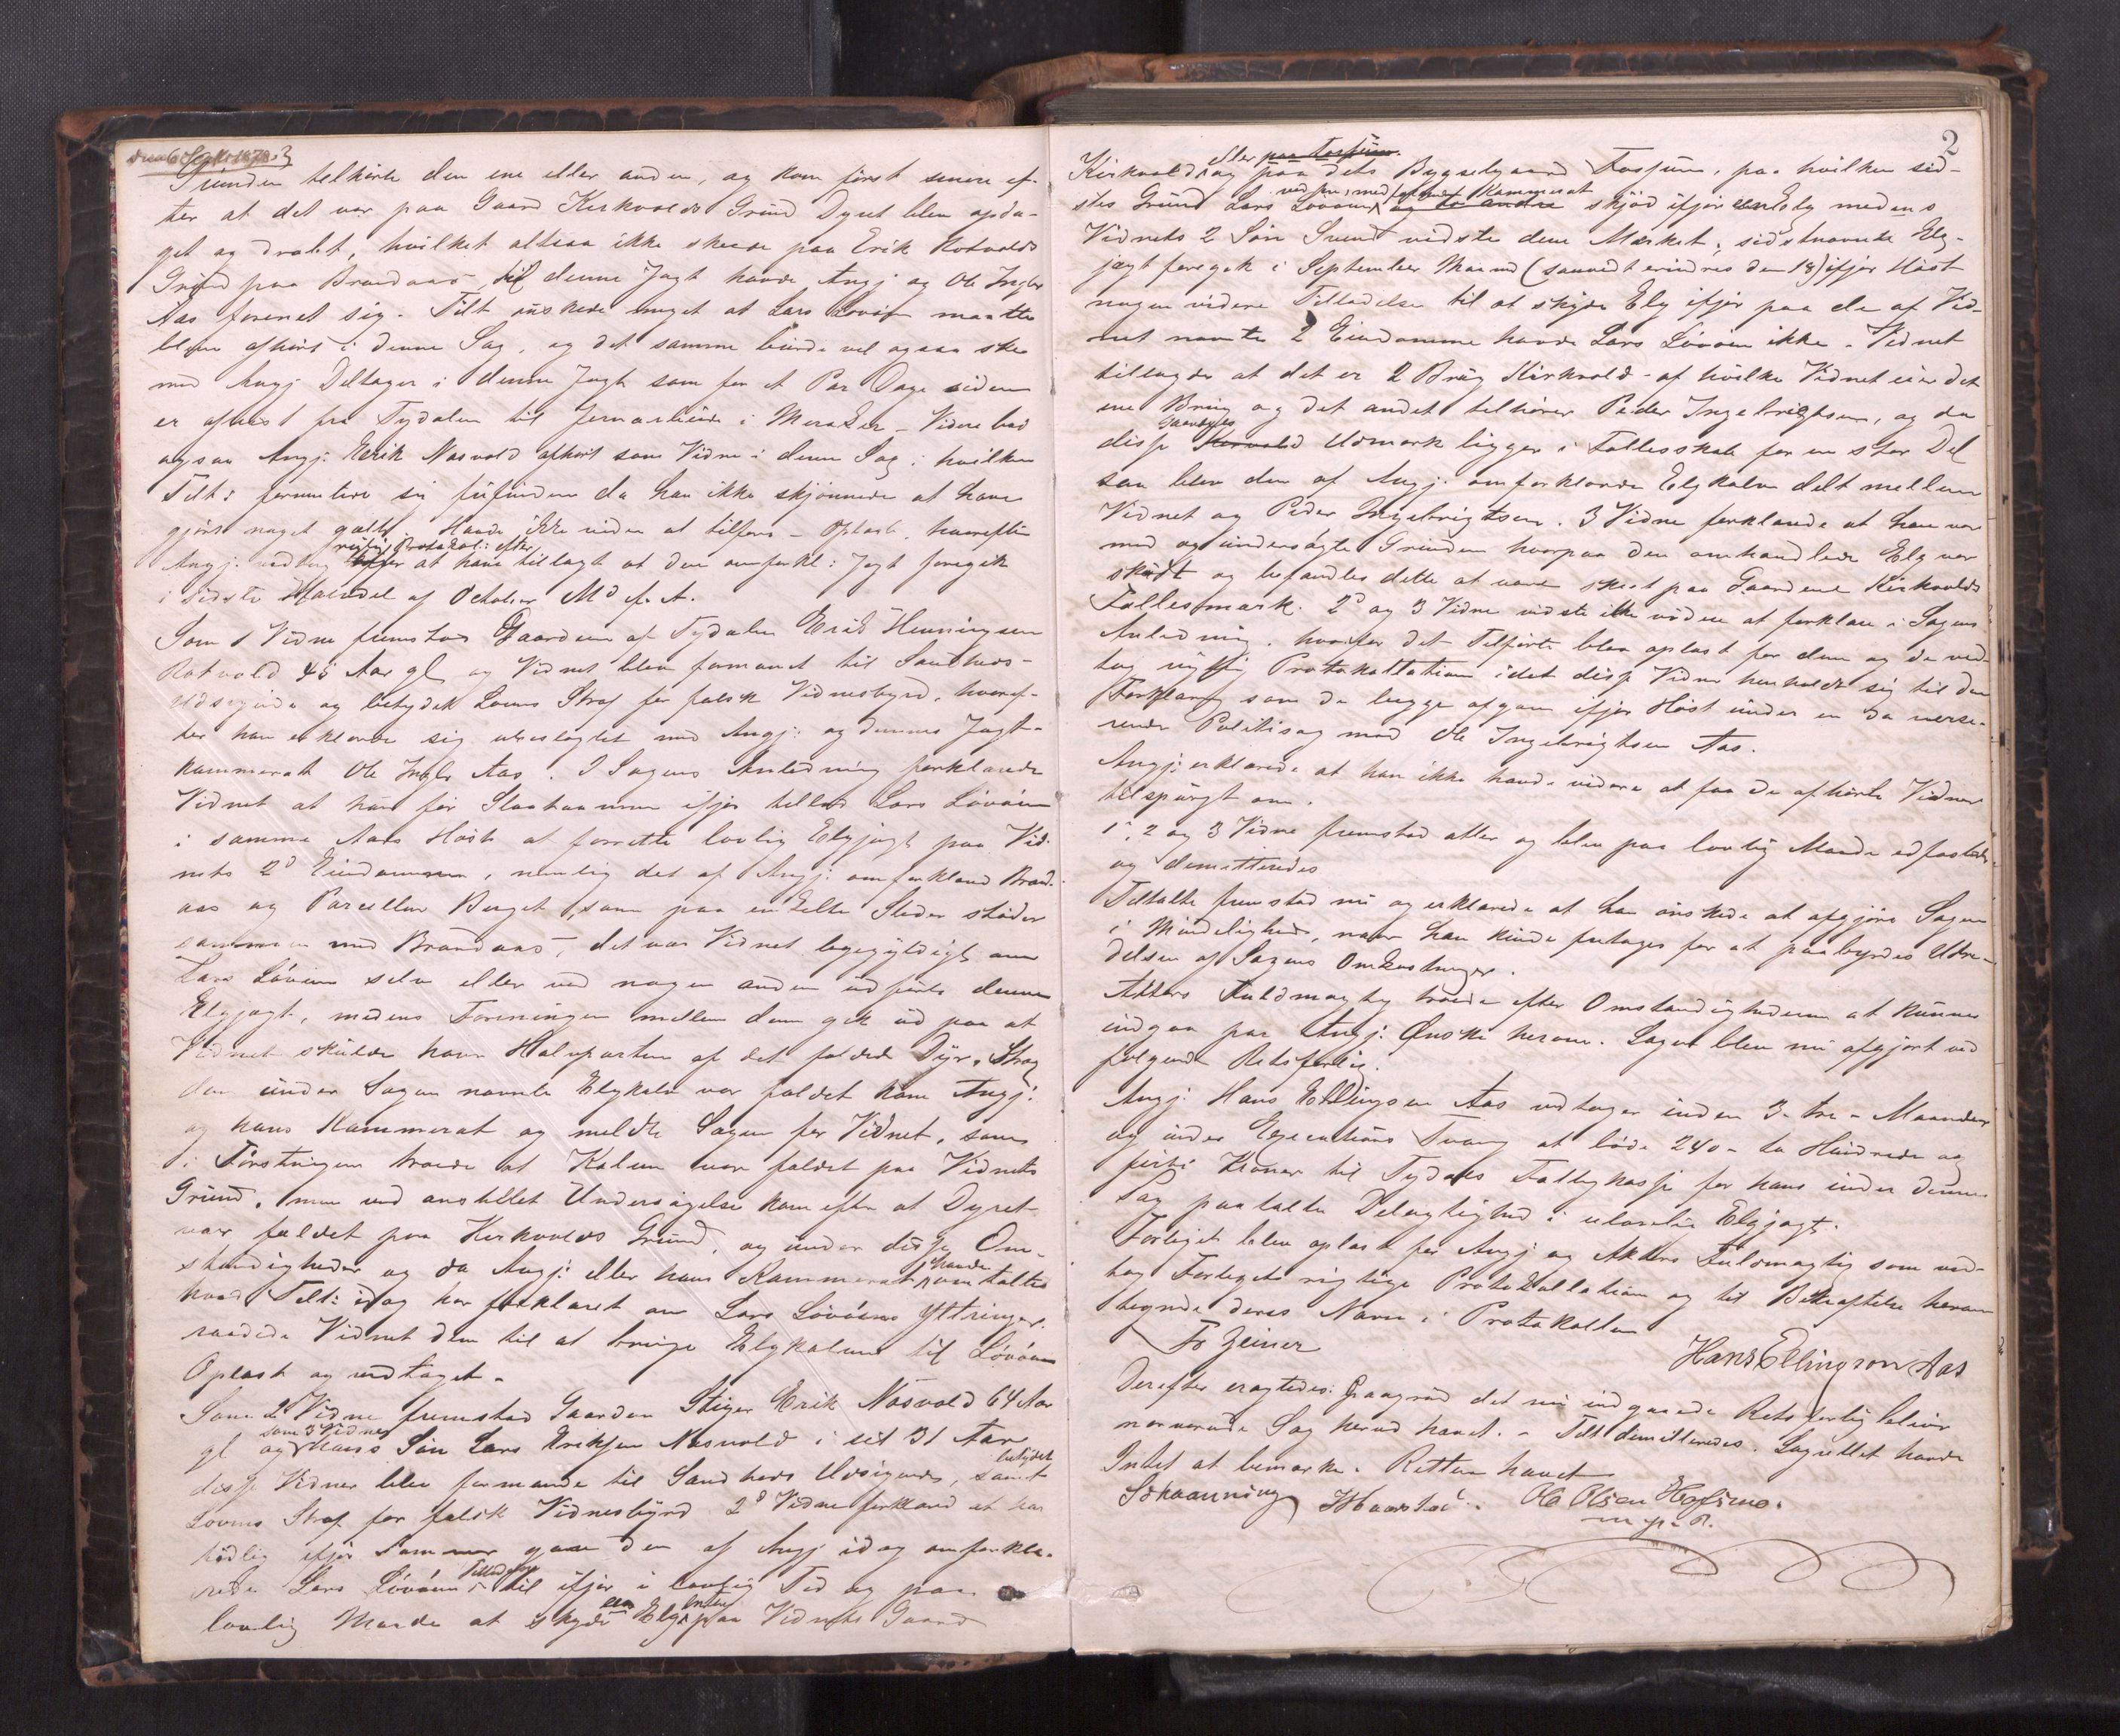 den 6 Septbr 1878.
Grunden tilhørte den ene eller anden, og kom først senere ef-
ter at det var paa Gaard Kirkvolds Grund Dyret blev opda-
get og dræbt, hvilket altsaa ikke skede paa Erik Rotvolds
Grund paa Brandaas, til denne Jagt havde Angj og Ole Ingbr
Aas forenet sig. Tilt ønskede meget at Lars Løvøen maatte
blive afhørt i denne Sag, og det samme burde vel ogsaa ske
med Angj Deltager i denne Jagt som for et Par Dage siden
er afreist fra Tydalen til Jernarbeide i Meraker - Videre bad
ogsaa Angj: Erik Næsvold afhørt som Vidne i denne Sag i hvilken
Tilt: formentlig sig frifunden da han ikke skjønnede at have
gjort noget galt. Havde ikke videre at tilføre - Oplæst, hvorefter
Angj: vedtog rigtig Protokol: efter at have tillagt at den omforkl: Jagt foregik
i sidste Halvdel af October Md f. A.
Som 1 Vidne fremstod Gaardm af Tydalen Erik Henningsen
Rotvold 45 Aar gl og Vidnet blev formanet til Sandheds-
Udsigende og betydet Lovens Straf for falsk Vidnesbyrd, hvoref-
ter han erklærede sig ubeslægtet med Angj: og dennes Jagt-
kammerat Ole Ingbr Aas. I Sagens Anledning forklarede
Vidnet at han før Slaataannen ifjor tillod Lars Løvøen
i samme Aars Høst at forrette lovlig Elgjagt paa Vid-
nets 2de Eiendomme, nemlig det af Angj: omforklared Brand-
aas og Parcellen Berget, som paa enkelte Steder støder
sammen med Brandaas, det var Vidnet ligegyldigt om
Lars Løvøen selv eller ved nogen anden udførte denne
Elgjagt, medens Foreningen mellem dem gik ud paa at
Vidnet skulde have Halvparten af det fældede Dyr. Strax
den under Sagen nævnte Elgkalv var fældet kom Angj:
og hans Kammerat og meldte Sagen for Vidnet, som
i Førstningen troede at Kalven var fældet paa Vidnets
Grund, men ved anstillet Undersøgelse kom efter at Dyret
var fældet paa Kirkvolds Grund, og under disse Om-
stændigheder og da Angj: eller hans Kammerat havde omtalte
hvad Tilt: idag har forklaret om Lars Løvøens Yttringer.
raadede Vidnet dem til at bringe Elgkalven til Løvøen
Oplæst og vedtaget.
Som 2 Vidne fremstod Gaarden Stiger Erik Næsvold 64 Aar
gl og som 3 Vidne Hans Søn Lars Eriksen Næsvold i sit 31 Aar
disse Vidner blev formanede til Sandheds Udsigende, samt betydet
Lovens Straf for falsk Vidnesbyrd 2d Vidne forklared at han
tidlig ifjor Sommer gav den af Angj idag omforkla-
rede Lars Løvøen Tilladelse til ifjor i lovlig Tid og paa
lovlig Maade at skyde een Elg enten paa Vidnets Gaard
2
Kirkvold eller paa Fossum. og paa dets Bygselgaard Fossum, paa hvilken sid-
stes Grund Lars Løvøen ved sin, med havende Kammerat og to andre skjød ifjor een Elg medens
Vidnets 2 Søn Svend vidste dem Mærket, sidstnævnte Elg-
jagt foregik i September Maaned (saavidt erindres den 18) ifjor Høst
nogen videre Tilladelse til at skyde Elg ifjor paa de af Vid-
net nævnte 2 Eiendomme havde Lars Løvøen ikke. Vidnet
tillagde at det er 2 Brug Kirkvold - af hvilke Vidnet eier det
ene Brug og det andet tilhører Peder Ingebrigtsen, og da
disse Gaardes Kirvold Udmark ligger i Fællesskab for en stor Del
saa blev den af Angj. omforklarede Elgkalv delt mellem
Vidnet og Peder Ingebrigtsen. 3 Vidne forklarede at han var
med og undersøgte Grunden hvorpaa den omhandlede Elg var
skudt og befandtes dette at være skeet paa Gaardene Kirkvolds
Fællesmark. 2d og 3 Vidne vidste ikke videre at forklare i Sagens
Anledning, hvorfor det Tilførte blev oplæst for dem og de ved-
tog rigtig Protokollation idet disse Vidner henholdt sig til den
Forklaring som de begge afgav ifjor Høst under en da verse-
rende Politisag mod Ole Ingebrigtsen Aas.
Angj: erklærede at han ikke havde videre at faa de afhørte Vidner
tilspurgt om.
1', 2 og 3 Vidne fremstod atter og blev paa lovlig Maade edfæstede
og demitteredes
Tiltalte fremstod nu og erklærede at han ønskede at afgjøre Sagen
i Mindelighed, naar han kunde fritages for at paabyrdes Udre-
delsen af Sagens Omkostninger.
Aktors Fuldmægtig troede efter Omstændighederne at kunne
indgaa paa Angj: Ønske herom. Sagen blev nu afgjort ved
følgende Retsforlig.
Angj: Hans Ellingsen Aas vedtager inden 3 - tre - Maaneder
og under Executions Tvang at bøde 240 - to Hundrede og
førti Kroner til Tydals Fattigkasse for hans under denne
Sag paatalte Delagtighed i ulovlig Elgjagt.
Forliget blev oplæst for Angj og Aktors Fuldmægtig som ved-
tog Forligets rigtige Protokollation og til Bekræftelse herom
tegnede deres Navn i Protokollen
Fr Zeiner
Hans Ellingson Aas
Derefter eragtedes: Paagrund det nu indgaaede Retsforlig bliver
nærværende Sag herved hævet. - Tilt demitteredes. Lagrettet havde
Intet at bemærke. Retten hævet
Schaanning Ole Olsen
m. p. P.